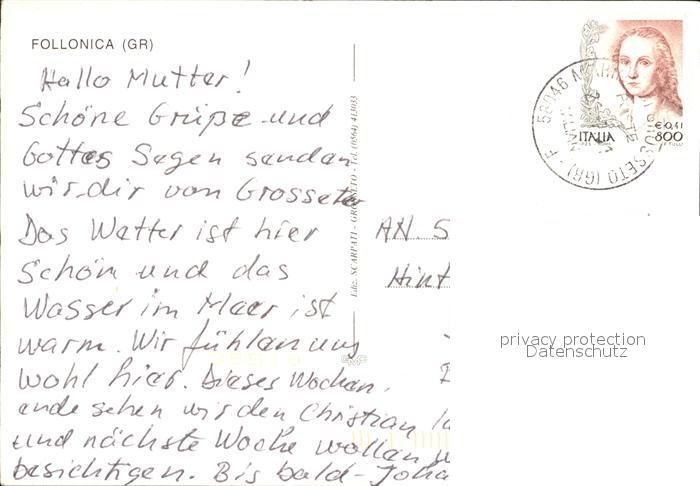 FOLLONICA (GR)
Hallo Mutter!
Schöne Grüße und
Gottes Segen senden
wir dir von Grosseto
Das Wetter ist hier
Schön und das
Wasser im Meer ist
warm. Wir fühlen uns
wohl hier. Dieses Wochen,
ende sehen wir den Christian
und nächste Woche wollen
besichtigen. Bis bald - Joha
Ediz. SCARPATI - GROSSETO - Tel. (0564) 413033
AN S
Hint
ITALIA
€ 0,41
800
58046
privacy protection
Datenschutz